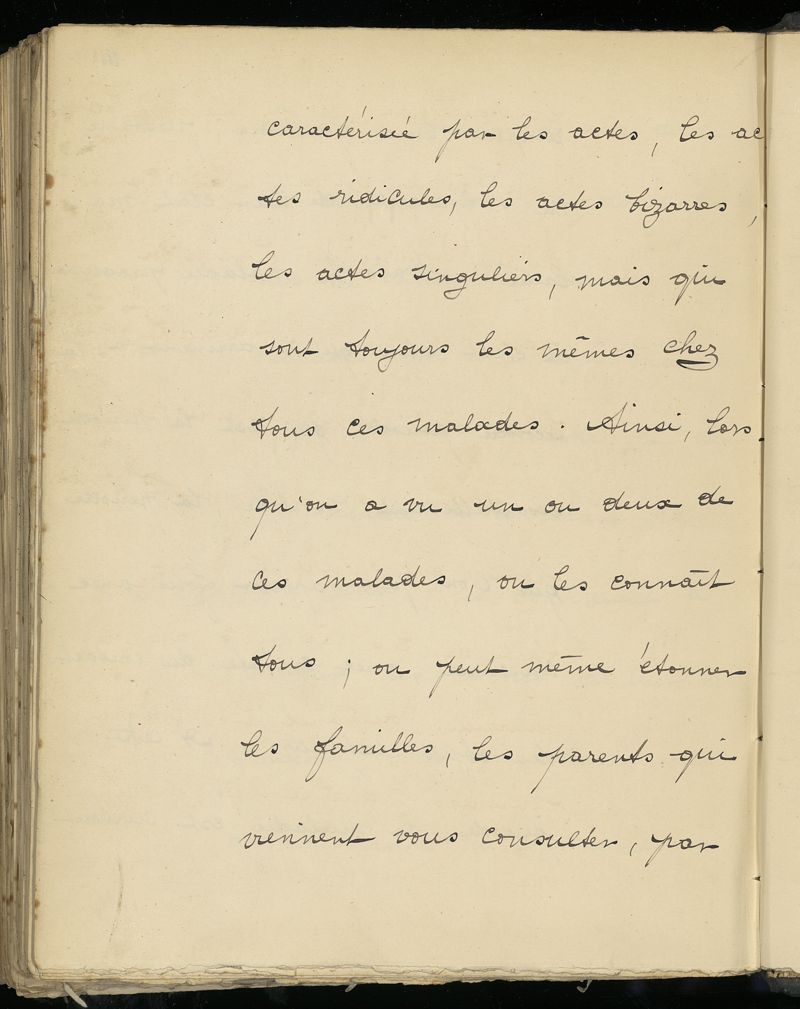 caractérisée par les actes, les ac
tes ridicules, les actes bizarres,
les actes singuliers, mais qui
sont toujours les mêmes chez
tous ces malades. Ainsi, lors
qu'on a vu un ou deux de
ces malades, on les connaît
tous ; on peut même étonner
les familles, les parents qui
viennent vous consulter, par